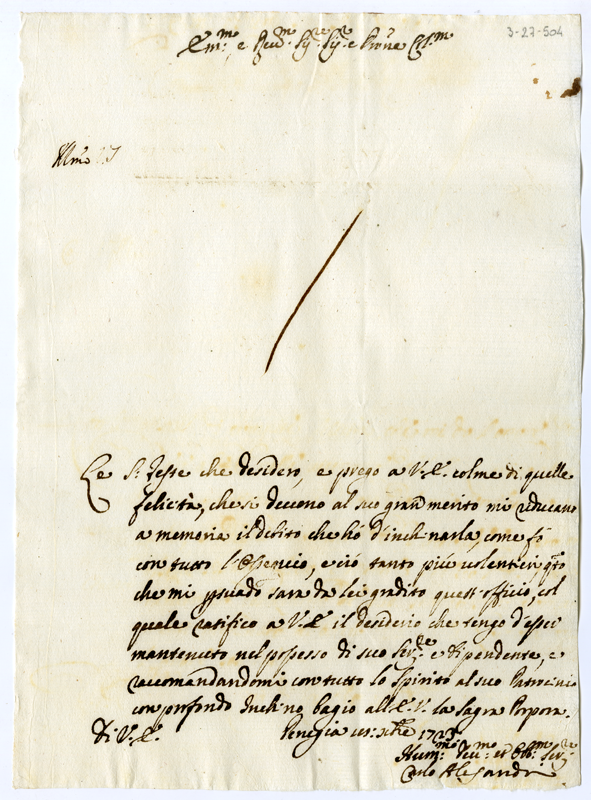 3-27-504
Em.mo e Rev.mo Sig.re Sig.re e P'rone Col.mo
Le S.te feste che desidero, e prego a V.E. colme di quelle
felicità, che si deveno al suo gran merito mi riducano
a memoria il debito che hò d'inchinarla, come fò
con tutto l'ossequio, e ciò tanto più volentieri q.to
che mi p'suado sarà da lei gradito quest'officio, col
quale ratifico a V.E. il desiderio che tengo d'esser
mantenuto nel possesso di suo Ser.re e dipendente, e
racomandandomi con tutto lo spirito al suo Patrocinio
con profondo Inchino bagio all'E.V. la Sagra Porpora.
Di V.E. Venezia 1723
Hum.mo Dev.mo et Obb.mo Ser.re
Carlo Alesandri